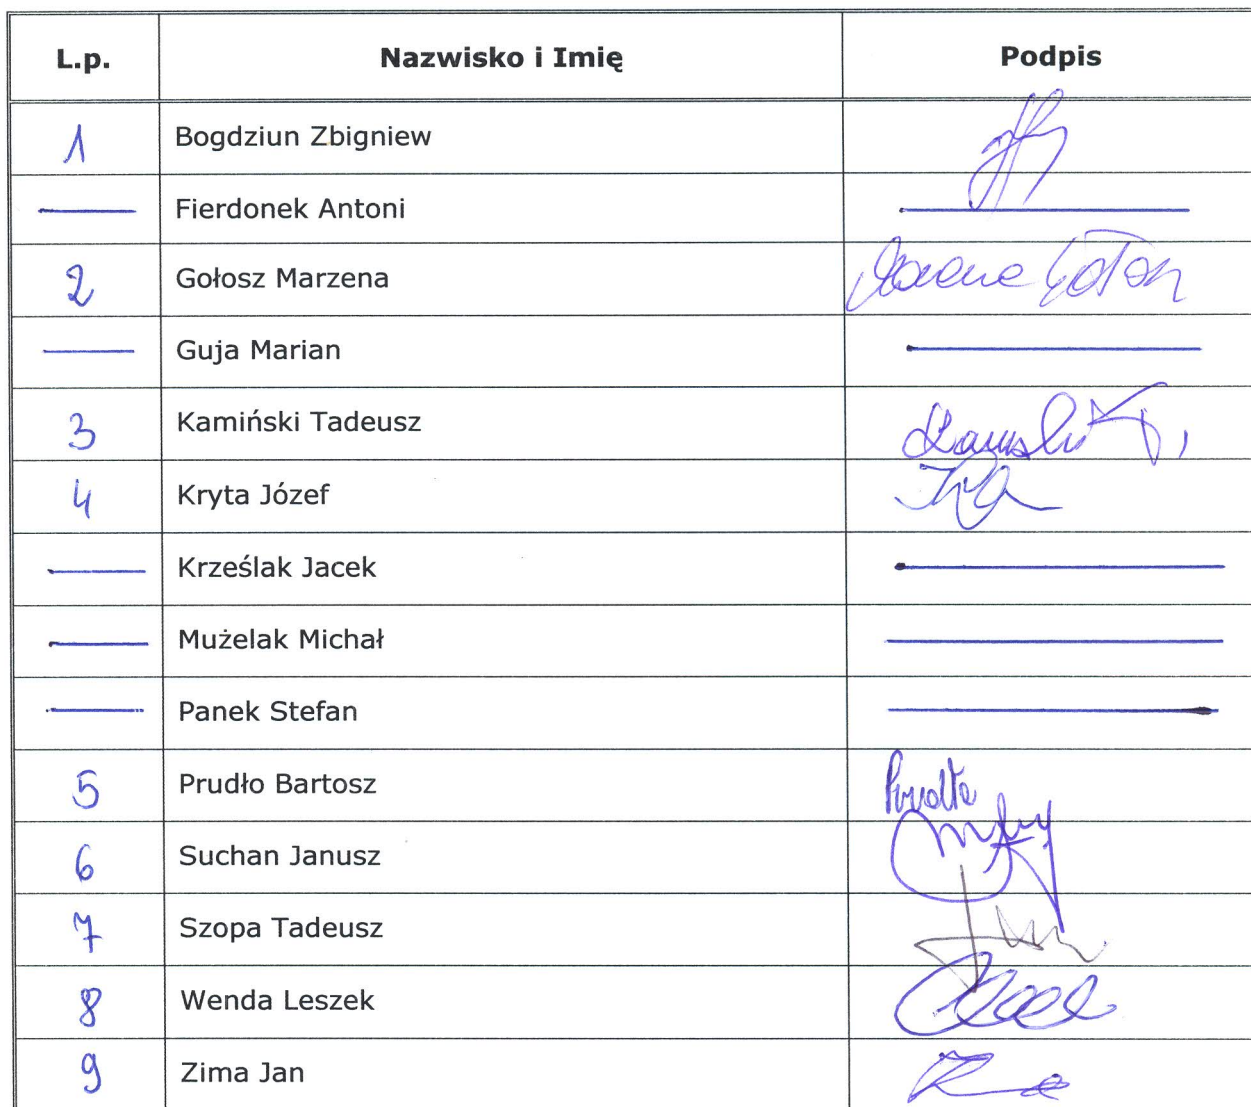 L.p. Nazwisko i Imię Podpis
1 Bogdziun Zbigniew
Fierdonek Antoni
2 Gołosz Marzena
Guja Marian
3 Kamiński Tadeusz
4 Kryta Józef
Krześlak Jacek
Mużelak Michał
Panek Stefan
5 Prudło Bartosz
6 Suchan Janusz
7 Szopa Tadeusz
8 Wenda Leszek
9 Zima Jan